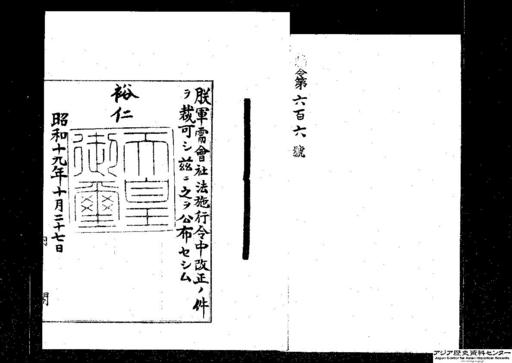 令第六百六號
朕軍需會社法施行令中改正ノ件
ヲ裁可シ茲ニ之ヲ公布セシム
裕仁
天皇
御璽
昭和十九年十月二十七日
アジア歴史資料センター
Japan Center for Asian Historical Records